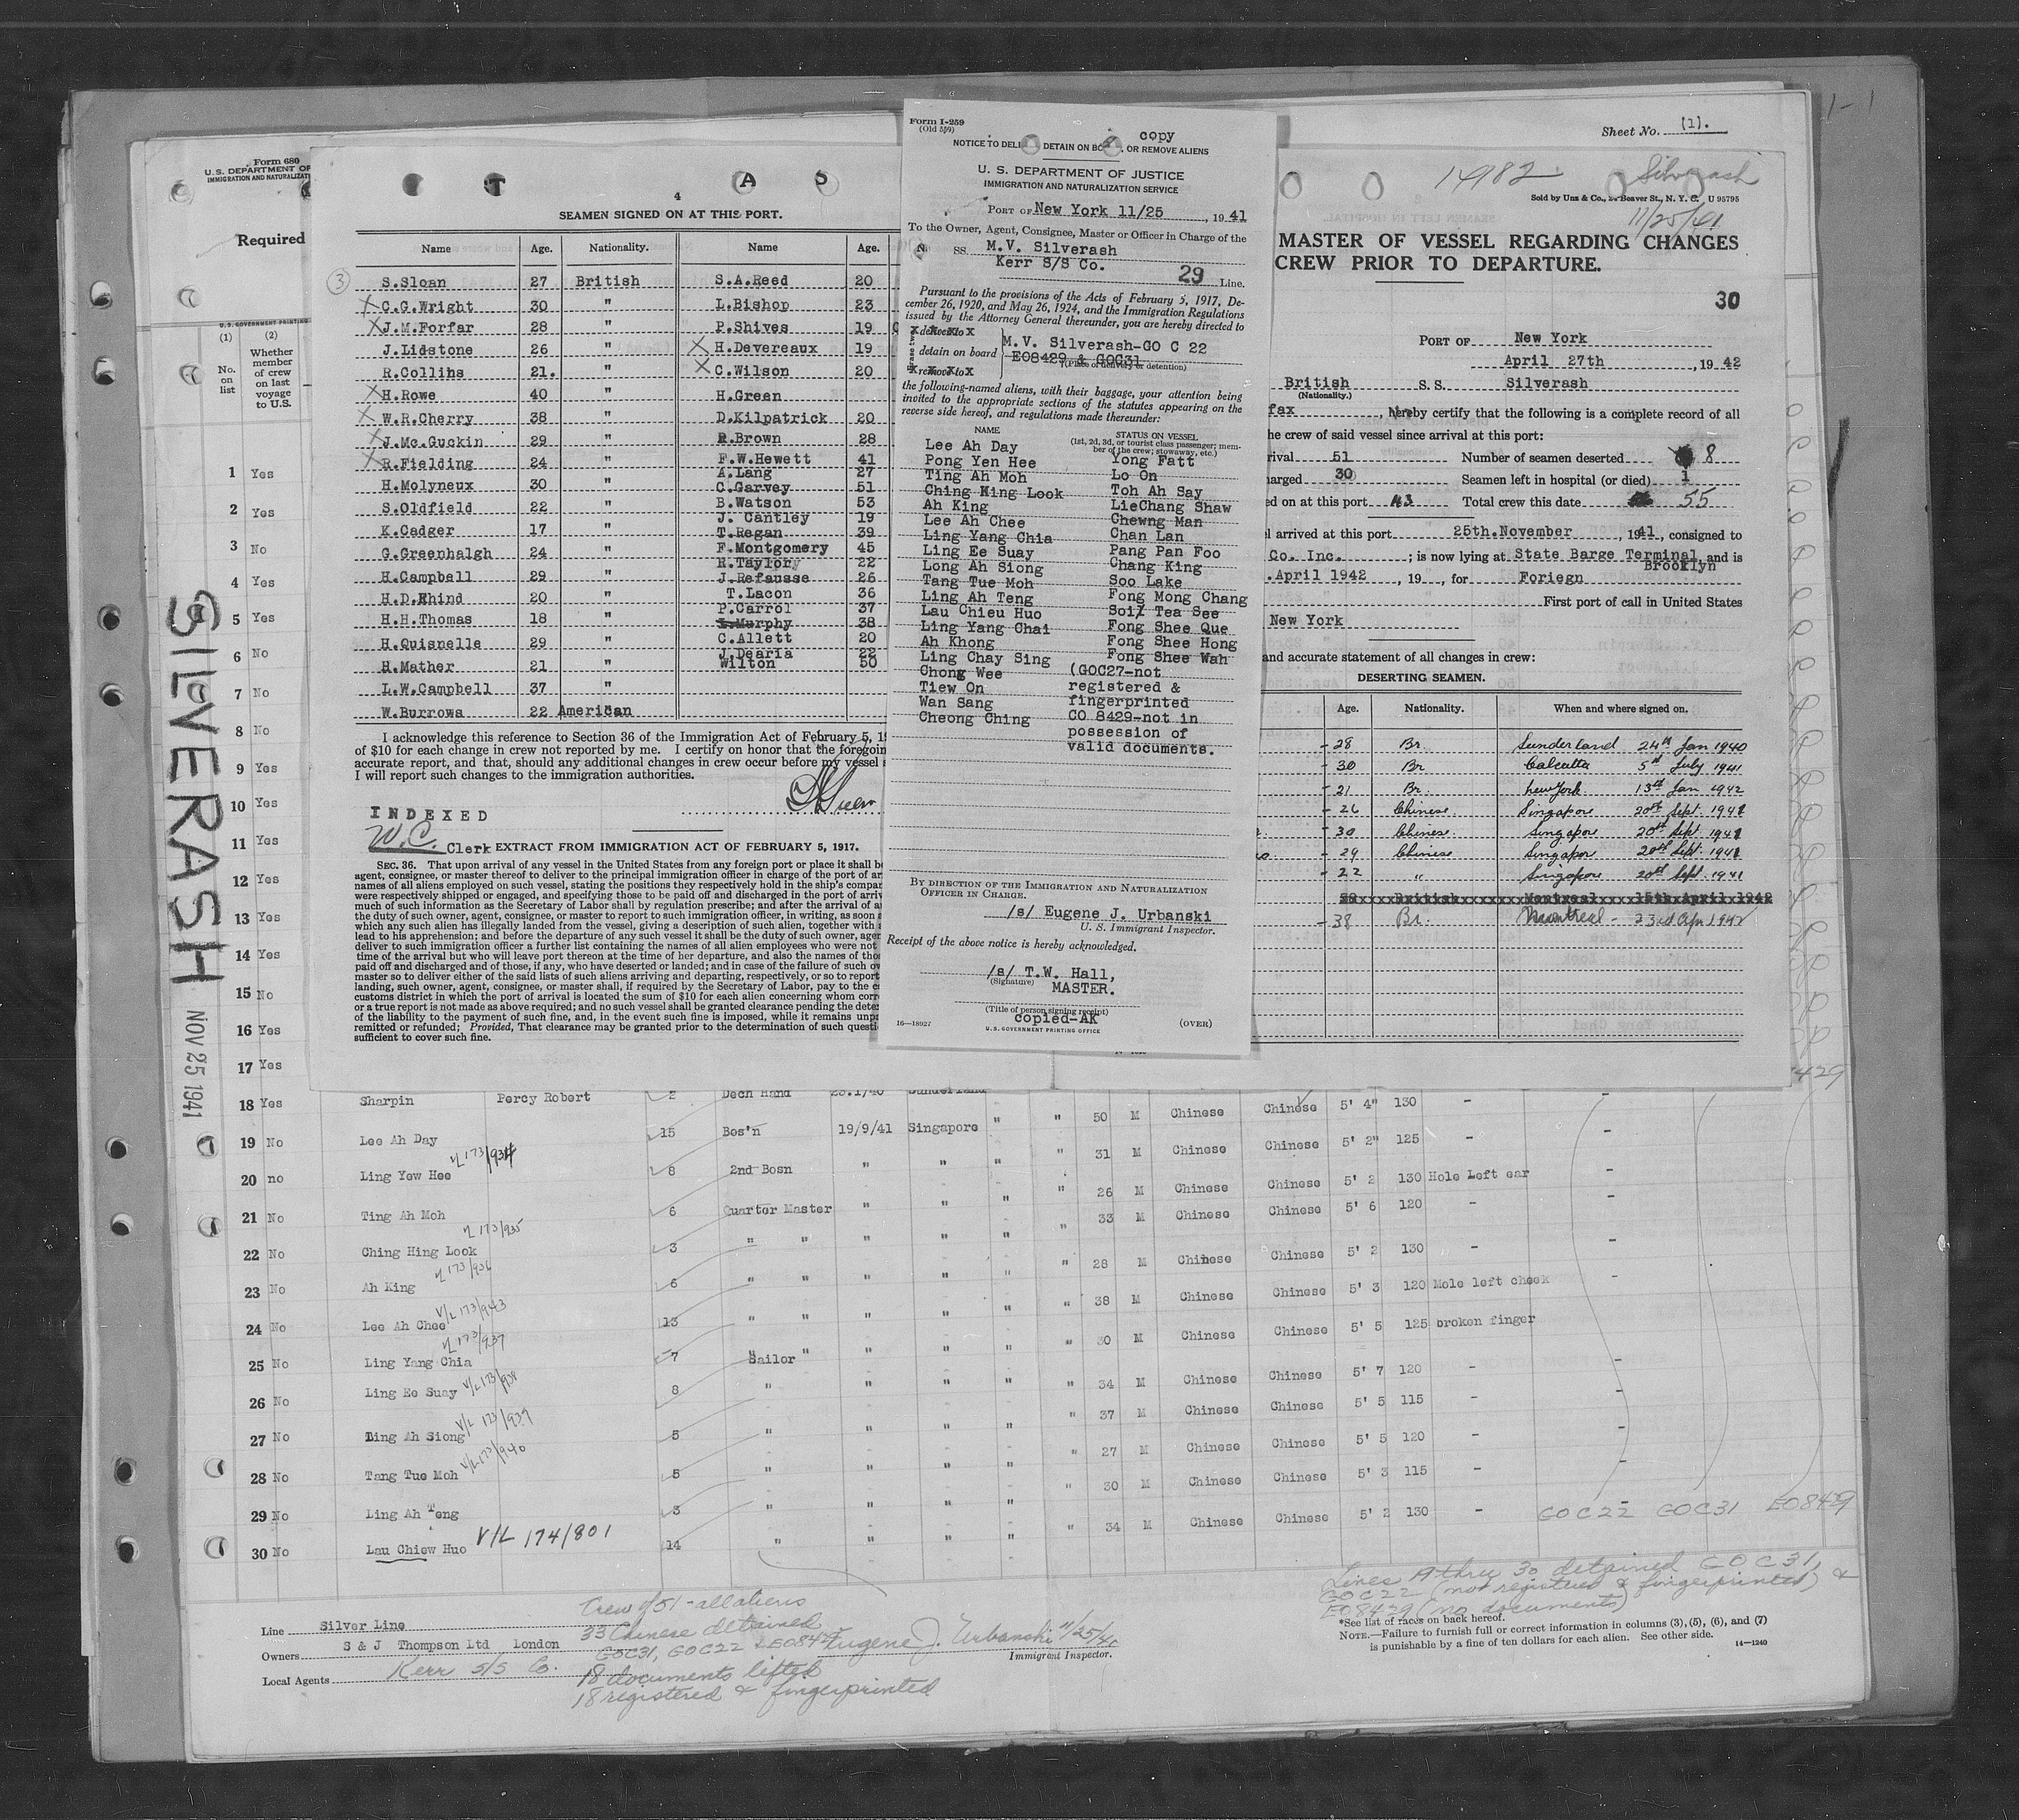 Form 680
U.S. DEPARTMENT OF
IMMIGRATION AND NATURALIZAT
Required
U.S. GOVERNMENT PRINTING
(1) (2)
No. on list
Whether member of crew on last voyage to U.S.
1 Yes
2 Yes
3 No
4 Yes
5 Yes
6 No
7 No
8 No
9 Yes
10 Yes
11 Yes
12 Yes
13 Yes
14 Yes
15 No
16 Yes
17 Yes
SILVERASH
NOV 25 1941
T A S
4
SEAMEN SIGNED ON AT THIS PORT.
Name Age. Nationality. Name Age.
(3) S.Sloan 27 British S.A.Reed 20
X C.G.Wright 30 " L.Bishop 23
X J.M.Forfar 28 " P.Shives 19
J.Lidstone 26 " X H.Devereaux 19
R.Collins 21. " X C.Wilson 20
X H.Rowe 40 " H.Green
X W.R.Cherry 38 " D.Kilpatrick 20
X J.Mc.Guckin 29 " R.Brown 28
X R.Fielding 24 " F.W.Hewett 41
A.Lang 27
H.Molyneux 30 " C.Garvey 51
S.Oldfield 22 " B.Watson 53
J. Cantley 19
K.Cadger 17 " T.Regan 39
G.Greenhalgh 24 " F.Montgomery 45
R.Taylory 22
H.Campbell 29 " J.Refausse 26
H.D.Rhind 20 " T.Lacon 36
P.Carrol 37
H.H.Thomas 18 " Murphy 38
H.Quisnelle 29 " C.Allett 20
J.Dearia 22
H.Mather 21 " Wilton 50
L.W.Campbell 37 "
W.Burrows 22 American
I acknowledge this reference to Section 36 of the Immigration Act of February 5, 1
of $10 for each change in crew not reported by me. I certify on honor that the foregoin
accurate report, and that, should any additional changes in crew occur before my vessel
I will report such changes to the immigration authorities.
INDEXED
W.C. Clerk
EXTRACT FROM IMMIGRATION ACT OF FEBRUARY 5, 1917.
SEC. 36. That upon arrival of any vessel in the United States from any foreign port or place it shall be
agent, consignee, or master thereof to deliver to the principal immigration officer in charge of the port of ar
names of all aliens employed on such vessel, stating the positions they respectively hold in the ship's compan
were respectively shipped or engaged, and specifying those to be paid off and discharged in the port of arriv
much of such information as the Secretary of Labor shall by regulation prescribe; and after the arrival of a
the duty of such owner, agent, consignee, or master to report to such immigration officer, in writing, as soon
which any alien has illegally landed from the vessel, giving a description of such alien, together with
lead to his apprehension; and before the departure of any such vessel it shall be the duty of such owner, agen
deliver to such immigration officer a further list containing the names of all alien employees who were not
time of the arrival but who will leave port thereon at the time of her departure, and also the names of thos
paid off and discharged and of those, if any, who have deserted or landed; and in case of the failure of such ow
master so to deliver either of the said lists of such aliens arriving and departing, respectively, or so to report
landing, such owner, agent, consignee, or master shall, if required by the Secretary of Labor, pay to the c
customs district in which the port of arrival is located the sum of $10 for each alien concerning whom corr
or a true report is not made as above required; and no such vessel shall be granted clearance pending the deter
of the liability to the payment of such fine, and, in the event such fine is imposed, while it remains unp
remitted or refunded; Provided, That clearance may be granted prior to the determination of such questi
sufficient to cover such fine.
Form I-259
(Old 559)
copy
NOTICE TO DELI DETAIN ON BO OR REMOVE ALIENS
U. S. DEPARTMENT OF JUSTICE
IMMIGRATION AND NATURALIZATION SERVICE
PORT OF New York 11/25, 1941
To the Owner, Agent, Consignee, Master or Officer in Charge of the
SS. M.V. Silverash
Kerr S/S Co. 29 Line.
Pursuant to the provisions of the Acts of February 5, 1917, De-
cember 26, 1920, and May 26, 1924, and the Immigration Regulations
issued by the Attorney General thereunder, you are hereby directed to
detain on board M.V. Silverash-GO C 22
EO8429 & GOC31
(Place of delivery or detention)
the following-named aliens, with their baggage, your attention being
invited to the appropriate sections of the statutes appearing on the
reverse side hereof, and regulations made thereunder:
NAME STATUS ON VESSEL
(1st, 2d, 3d, or tourist class passenger; mem-
ber of the crew; stowaway, etc.)
Lee Ah Day
Pong Yen Hee Yong Fatt
Ting Ah Moh Lo On
Ching King Look Toh Ah Say
Ah King LieChang Shaw
Lee Ah Chee Chewng Man
Ling Yang Chia Chan Lan
Ling Ee Suay Pang Pan Foo
Long Ah Siong Chang King
Tang Tue Moh Soo Lake
Ling Ah Teng Fong Mong Chang
Lau Chieu Huo Soil Tea See
Ling Yang Chai Fong Shee Que
Ah Khong Fong Shee Hong
Ling Chay Sing Fong Shee Wah
Chong Wee (GOC27-not
Tiew On registered &
Wan Sang fingerprinted
Cheong Ching CO 8429-not in
possession of
valid documents.
BY DIRECTION OF THE IMMIGRATION AND NATURALIZATION
OFFICER IN CHARGE.
/s/ Eugene J. Urbanski
U. S. Immigrant Inspector.
Receipt of the above notice is hereby acknowledged.
/s/ T.W. Hall,
(Signature) MASTER.
(Title of person signing receipt)
copied-AK
16-18927 U. S. GOVERNMENT PRINTING OFFICE (OVER)
Sheet No. (1).
14982 Silverash
Sold by Unz & Co., 24 Beaver St., N. Y. C. U 95795
11/25/41
MASTER OF VESSEL REGARDING CHANGES
CREW PRIOR TO DEPARTURE.
30
PORT OF New York
April 27th, 1942
British S. S. Silverash
(Nationality.)
fax, hereby certify that the following is a complete record of all
he crew of said vessel since arrival at this port:
rival 51 Number of seamen deserted 8
harged 30 Seamen left in hospital (or died) 1
ed on at this port 43 Total crew this date 55
l arrived at this port 25th.November, 1941, consigned to
Co. Inc. ; is now lying at State Barge Terminal, and is
Brooklyn
.April 1942, 19 , for Foriegn
First port of call in United States
New York
and accurate statement of all changes in crew:
DESERTING SEAMEN.
Age. Nationality. When and where signed on.
- 28 Br. Sunderland 24th Jan 1940
- 30 Br Calcutta 5th July 1941
- 21 Br. New York 13th Jan 1942
- 26 Chinese. Singapore 20th Sept. 1941
- 30 Chinese. Singapore 20th Sept 1941
- 29 Chinese Singapor 20th Sept. 1941
- 22 " Singapore 20th Sept 1941
British Montreal 15th April 1942
- 38 Br. Montreal - 23rd Apr 1942
18 Yes Sharpin Percy Robert 2 Deck Hand Sunderland
" " 50 M Chinese Chinese 5' 4" 130 - -
19 No Lee Ah Day 15 Bos'n 19/9/41 Singapore
V/L 173/934
" " 31 M Chinese Chinese 5' 2" 125 - -
20 no Ling Yew Hee 8 2nd Bosn " "
" " 26 M Chinese Chinese 5' 2 130 Hole Left ear -
21 No Ting Ah Moh 6 Quarter Master " "
V/L 173/935
" " 33 M Chinese Chinese 5' 6 120 - -
22 No Ching Hing Look 3 " " " "
V/L 173/936
" " 28 M Chinese Chinese 5' 2 130 - -
23 No Ah King 6 " " " "
V/L 173/943
" " 38 M Chinese Chinese 5' 3 120 Mole left cheek -
24 No Lee Ah Chee 13 " " " "
V/L 173/937
" " 30 M Chinese Chinese 5' 5 125 broken finger
25 No Ling Yang Chia 7 Sailor " "
" " 34 M Chinese Chinese 5' 7 120 - -
26 No Ling Ee Suay V/L 173/938 8 " " "
" " 37 M Chinese Chinese 5' 5 115 - -
27 No Ling Ah Siong V/L 173/939 5 " " "
" " 27 M Chinese Chinese 5' 5 120 - -
28 No Tang Tue Moh V/L 173/940 5 " " "
" " 30 M Chinese Chinese 5' 3 115 - -
29 No Ling Ah Teng 3 " " "
" " 34 M Chinese Chinese 5' 2 130 - - GOC22 GOC31 EO8429
30 No Lau Chiew Huo V/L 174/801 14 " " "
Lines thru 30 detained GOC31,
GOC22 (not registered & fingerprinted) &
EO8429 (no documents)
Crew of 51 - all aliens
33 Chinese detained
GOC31, GOC22 & EO8429
18 documents lifted
18 registered & fingerprinted
Line Silver Line
Owners S & J Thompson Ltd London
Local Agents Kerr S/S Co.
Eugene J. Urbanski 11/25/41
Immigrant Inspector.
*See list of races on back hereof.
NOTE.—Failure to furnish full or correct information in columns (3), (5), (6), and (7)
is punishable by a fine of ten dollars for each alien. See other side. 14-1240